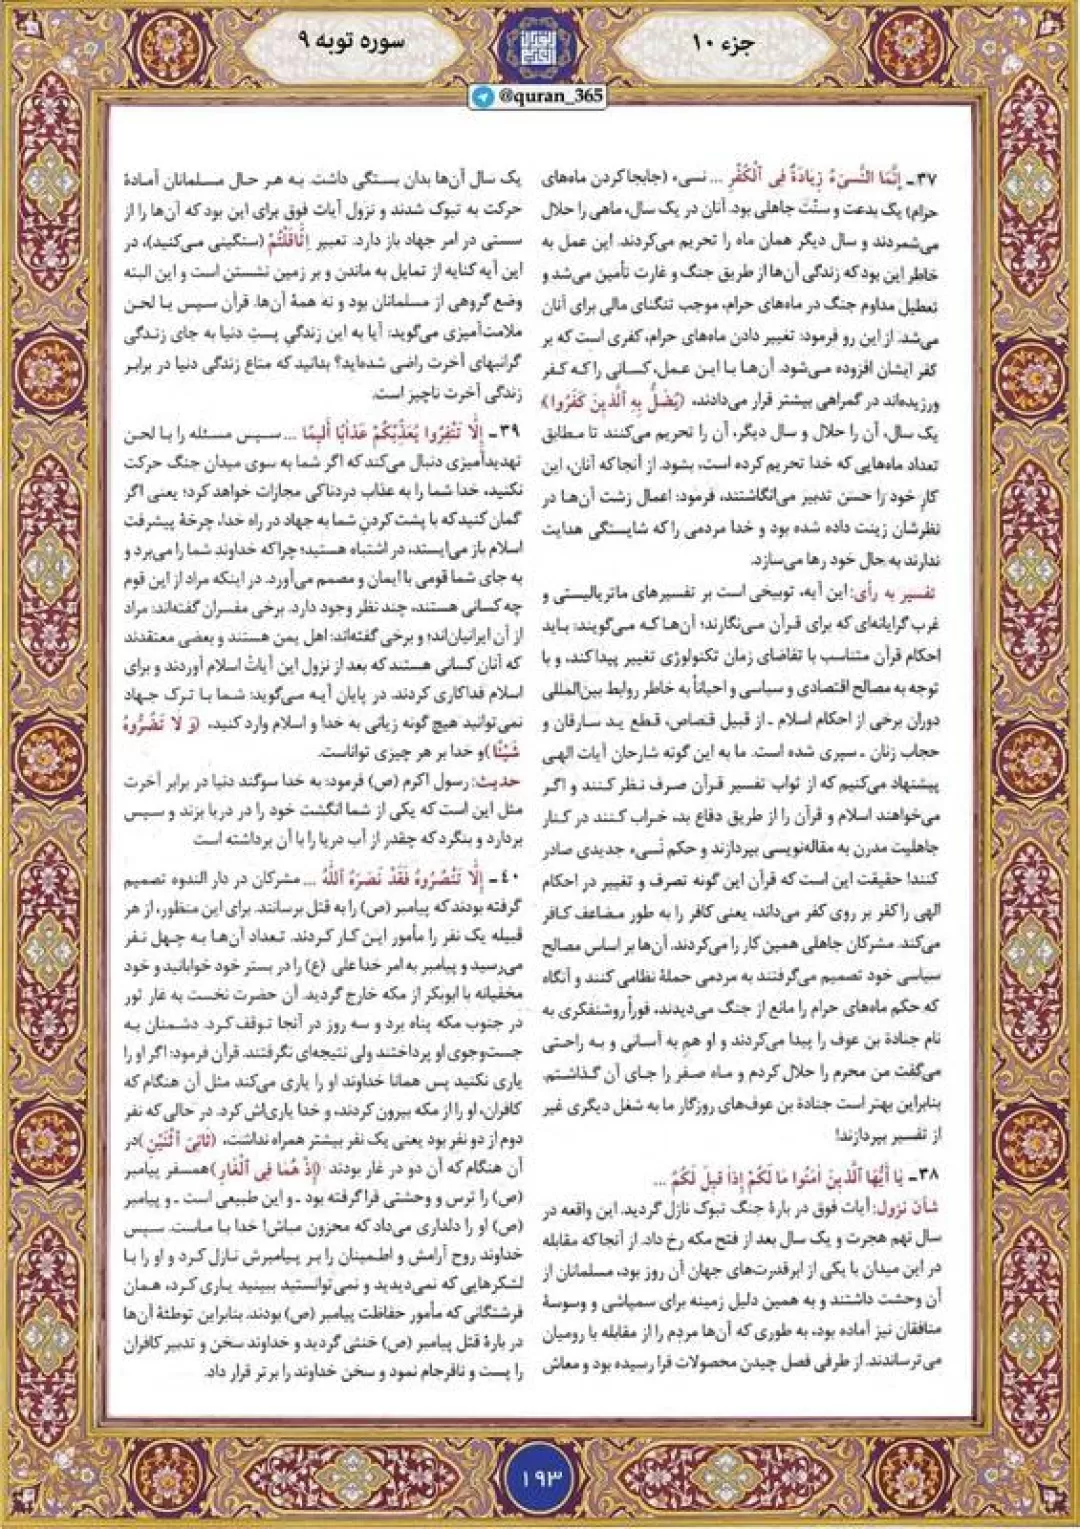 جزء ۱۰
سوره توبه ۹
@quran_365
۳۷ـ إِنَّمَا النَّسِیءُ زِیَادَةٌ فِی ٱلْکُفْرِ ... نسیء (جابجا کردن ماه‌های
حرام) یک بدعت و سنّت جاهلی بود. آنان در یک سال، ماهی را حلال
می‌شمردند و سال دیگر همان ماه را تحریم می‌کردند. این عمل به
خاطر این بود که زندگی آن‌ها از طریق جنگ و غارت تأمین می‌شد و
تعطیل مداوم جنگ در ماه‌های حرام، موجب تنگنای مالی برای آنان
می‌شد. از این رو فرمود: تغییر دادن ماه‌های حرام، کفری است که بر
کفر ایشان افزوده می‌شود. آن‌ها با این عمل، کسانی را که کفر
ورزیده‌اند در گمراهی بیشتر قرار می‌دادند، (یُضَلُّ بِهِ ٱلَّذِینَ کَفَرُوا)
یک سال، آن را حلال و سال دیگر، آن را تحریم می‌کنند تا مطابق
تعداد ماه‌هایی که خدا تحریم کرده است، بشود. از آنجا که آنان، این
کارِ خود را حسن تدبیر می‌انگاشتند، فرمود: اعمال زشت آن‌ها در
نظرشان زینت داده شده بود و خدا مردمی را که شایستگی هدایت
ندارند به حال خود رها می‌سازد.
تفسیر به رأی: این آیه، توبیخی است بر تفسیرهای ماتریالیستی و
غرب گرایانه‌ای که برای قرآن می‌نگارند؛ آن‌ها که می‌گویند: باید
احکام قرآن متناسب با تقاضای زمان تکنولوژی تغییر پیدا کند، و با
توجه به مصالح اقتصادی و سیاسی و احیاناً به خاطر روابط بین‌المللی
دوران برخی از احکام اسلام ـ از قبیل قصاص، قطع ید سارقان و
حجاب زنان ـ سپری شده است. ما به این گونه شارحان آیات الهی
پیشنهاد می‌کنیم که از ثواب تفسیر قرآن صرف نظر کنند و اگر
می‌خواهند اسلام و قرآن را از طریق دفاع بد، خراب کنند در کنار
جاهلیت مدرن به مقاله‌نویسی بپردازند و حکم نَسیء جدیدی صادر
کنند! حقیقت این است که قرآن این گونه تصرف و تغییر در احکام
الهی را کفر بر روی کفر می‌داند، یعنی کافر را به طور مضاعف کافر
می‌کند. مشرکان جاهلی همین کار را می‌کردند. آن‌ها بر اساس مصالح
سیاسی خود تصمیم می‌گرفتند به مردمی حملهٔ نظامی کنند و آنگاه
که حکم ماه‌های حرام را مانع از جنگ می‌دیدند، فوراً روشنفکری به
نام جنادة بن عوف را پیدا می‌کردند و او هم به آسانی و به راحتی
می‌گفت من محرم را حلال کردم و ماه صفر را جای آن گذاشتم.
بنابراین بهتر است جنادة بن عوف‌های روزگار ما به شغل دیگری غیر
از تفسیر بپردازند!
۳۸ـ یَا أَیُّهَا ٱلَّذِینَ اٰمَنُوا مَا لَکُمْ إِذَا قِیلَ لَکُمُ ...
شأن نزول: آیات فوق در بارهٔ جنگ تبوک نازل گردید. این واقعه در
سال نهم هجرت و یک سال بعد از فتح مکه رخ داد. از آنجا که مقابله
در این میدان با یکی از ابرقدرت‌های جهان آن روز بود، مسلمانان از
آن وحشت داشتند و به همین دلیل زمینه برای سمپاشی و وسوسهٔ
منافقان نیز آماده بود، به طوری که آن‌ها مردم را از مقابله با رومیان
می‌ترساندند. از طرفی فصل چیدن محصولات فرا رسیده بود و معاش
یک سال آن‌ها بدان بستگی داشت. به هر حال مسلمانان آمادهٔ
حرکت به تبوک شدند و نزول آیات فوق برای این بود که آن‌ها را از
سستی در امر جهاد باز دارد. تعبیر اِثَّاقَلْتُمْ (سنگینی می‌کنید)، در
این آیه کنایه از تمایل به ماندن و بر زمین نشستن است و این البته
وضع گروهی از مسلمانان بود و نه همهٔ آن‌ها. قرآن سپس با لحن
ملامت‌آمیزی می‌گوید: آیا به این زندگی پستِ دنیا به جای زندگی
گرانبهای آخرت راضی شده‌اید؟ بدانید که متاع زندگی دنیا در برابر
زندگی آخرت ناچیز است.
۳۹ـ إِلَّا تَنْفِرُوا یُعَذِّبْکُمْ عَذَابًا أَلِیمًا ... سپس مسئله را با لحن
تهدیدآمیزی دنبال می‌کند که اگر شما به سوی میدان جنگ حرکت
نکنید، خدا شما را به عذاب دردناکی مجازات خواهد کرد؛ یعنی اگر
گمان کنید که با پشت کردنِ شما به جهاد در راه خدا، چرخهٔ پیشرفت
اسلام باز می‌ایستد، در اشتباه هستید؛ چراکه خداوند شما را می‌برد و
به جای شما قومی با ایمان و مصمم می‌آورد. در اینکه مراد از این قوم
چه کسانی هستند، چند نظر وجود دارد. برخی مفسران گفته‌اند: مراد
از آن ایرانیان‌اند؛ و برخی گفته‌اند: اهل یمن هستند و بعضی معتقدند
که آنان کسانی هستند که بعد از نزول این آیاتْ اسلام آوردند و برای
اسلام فداکاری کردند. در پایان آیه می‌گوید: شما با ترک جهاد
نمی‌توانید هیچ گونه زیانی به خدا و اسلام وارد کنید، (وَ لَا تَضُرُّوهُ
شَیْئًا) و خدا بر هر چیزی تواناست.
حدیث: رسول اکرم (ص) فرمود: به خدا سوگند دنیا در برابر آخرت
مثل این است که یکی از شما انگشت خود را در دریا بزند و سپس
بردارد و بنگرد که چقدر از آب دریا را با آن برداشته است
۴۰ـ إِلَّا تَنْصُرُوهُ فَقَدْ نَصَرَهُ ٱللَّهُ ... مشرکان در دار الندوه تصمیم
گرفته بودند که پیامبر (ص) را به قتل برسانند. برای این منظور، از هر
قبیله یک نفر را مأمور این کار کردند. تعداد آن‌ها به چهل نفر
می‌رسید و پیامبر به امر خدا علی (ع) را در بستر خود خوابانید و خود
مخفیانه با ابوبکر از مکه خارج گردید. آن حضرت نخست به غار ثور
در جنوب مکه پناه برد و سه روز در آنجا توقف کرد. دشمنان به
جست‌وجوی او پرداختند ولی نتیجه‌ای نگرفتند. قرآن فرمود: اگر او را
یاری نکنید پس همانا خداوند او را یاری می‌کند مثل آن هنگام که
کافران، او را از مکه بیرون کردند، و خدا یاری‌اش کرد. در حالی که نفر
دوم از دو نفر بود یعنی یک نفر بیشتر همراه نداشت، (ثَانِیَ ٱثْنَیْنِ) در
آن هنگام که آن دو در غار بودند (إِذْ هُمَا فِی ٱلْغَارِ) همسفر پیامبر
(ص) را ترس و وحشتی فرا گرفته بود ـ و این طبیعی است ـ و پیامبر
(ص) او را دلداری می‌داد که محزون مباش! خدا با ماست. سپس
خداوند روح آرامش و اطمینان را بر پیامبرش نازل کرد و او را با
لشکرهایی که نمی‌دیدید و نمی‌توانستید ببینید یاری کرد، همان
فرشتگانی که مأمور حفاظت پیامبر (ص) بودند. بنابراین توطئهٔ آن‌ها
در بارهٔ قتل پیامبر (ص) خنثی گردید و خداوند سخن و تدبیر کافران
را پست و نافرجام نمود و سخن خداوند را برتر قرار داد.
۱۹۳